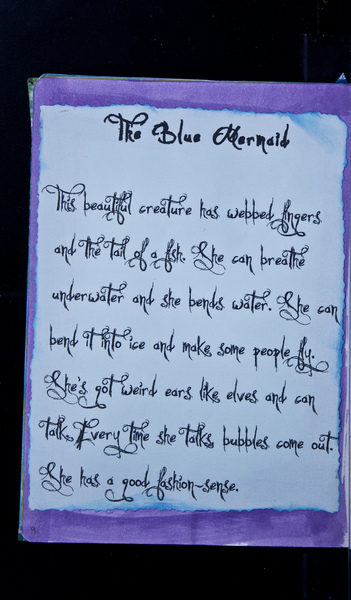 The Blue Mermaid
This beautiful creature has webbed fingers
and the tail of a fish. She can breathe
underwater and she bends water. She can
bend it into ice and make some people fly.
She's got weird ears like elves and can
talk. Every time she talks bubbles come out.
She has a good fashion-sense.